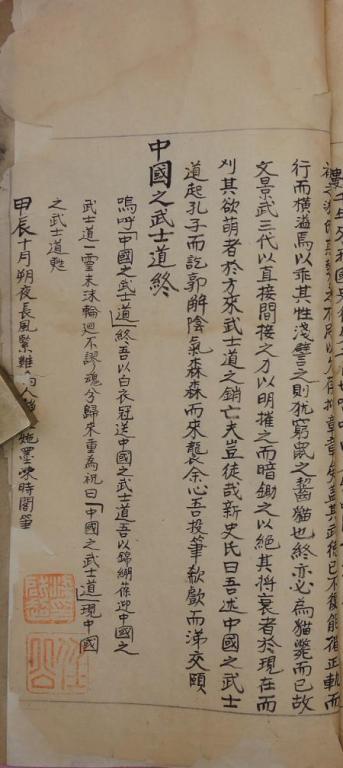 其武德已不復能循正軌而
行而橫溢焉以乖其性淺譬之則猶窮鼠之齧貓也終亦必為貓斃而已故
文景武三代以直接間接之力以明摧之而暗鋤之以絕其將衰者於現在而
刈其欲萌者於方來武士道之銷亡夫豈徒哉新史氏曰吾述中國之武士
道起孔子而訖郭解陰氣森森而來襲余心吾投筆欷歔而涕交頤
中國之武士道終
嗚呼「中國之武士道」終吾以白衣冠送中國之武士道吾以錦繃葆迎中國之
武士道一靈未沬輪迴不謬魂兮歸來重為祝曰「中國之武士道」現中國
之武士道甦
甲辰十月朔夜長風緊雞 墨凍時閣筆
任公